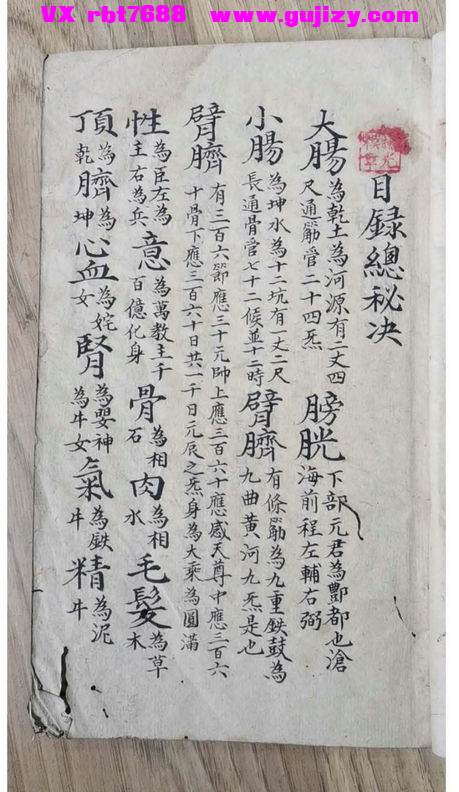 VX rbt7688 www.gujizy.com
目録總秘决
大腸 為乾土為河源有二丈四尺通觔管二十四炁 膀胱 下部元君為酆都也滄海前程左輔右弼
小腸 為坤水為十二坑有一丈二尺長通骨管七十二候並十二時 臂臍 有條觔為九重鉄鼓為九曲黄河九炁是也
臂臍 有三百六節應三十元帅上應三百六十應感天尊中應三百六十骨下應三百六十日共一千日元辰之炁身為大乘為圓滿
性 為臣左為主右為兵 意 為萬教主千百億化身 骨 為相石 肉 為相水 毛髮 為草木
頂 為乾 臍 為坤 心血 為姹女 腎 為嬰神為牛女 氣 為鉄牛 精 為泥牛